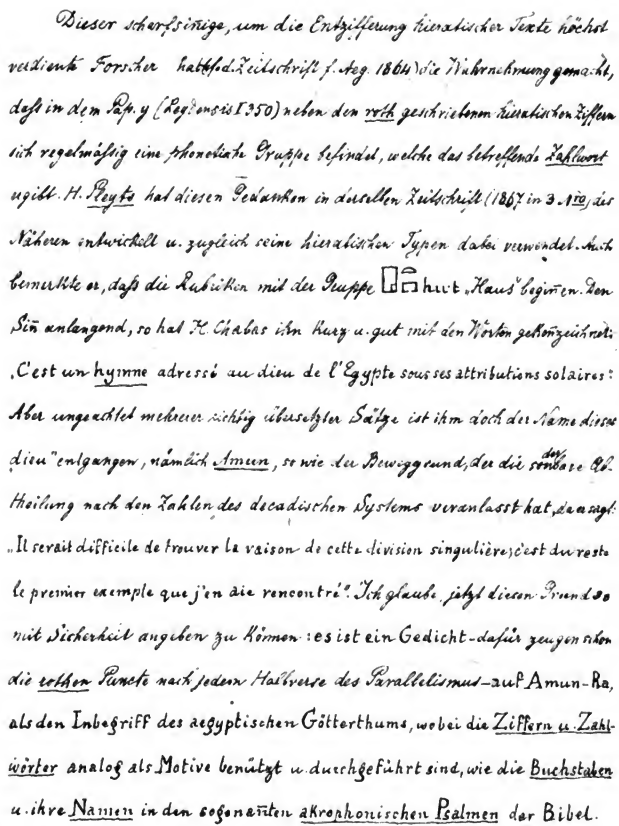 Dieser scharfsinnige, um die Entzifferung hieratischer Texte höchst
verdiente Forscher hatte (d. Zeitschrift f. Aeg. 1864) die Wahrnehmung gemacht,
daß in dem Pap. y (Leydensis I 350) neben den roth geschriebenen hieratischen Ziffern
sich regelmäßig eine phonetische Gruppe befindet, welche das betreffende Zahlwort
ugibt. H. Pleyte hat diesen Gedanken in derselben Zeitschrift (1867 in 3 Nro) des
Näheren entwickelt u. zugleich seine hieratischen Typen dabei verwendet. Auch
bemerkte er, daß die Rubriken mit der Gruppe hut „Haus" beginnen. Den
Sin̄ anlangend, so hat H. Chabas ihn kurz u. gut mit den Worten gekenzeichnet:
„C'est un hymne adressé au dieu de l'Egypte sous ses attributions solaires":
Aber ungeachtet mehrerer richtig übersetzter Sätze ist ihm doch der Name dieses
dieu" entgangen, nämlich Amun, so wie der Beweggrund, der die sonderbare Ab-
theilung nach den Zahlen des decadischen Systems veranlasst hat, da er sagt:
„Il serait difficile de trouver la raison de cette division singulière; c'est du reste
le premier exemple que j'en aie rencontré". Ich glaube, jetzt diesen Grund so
mit Sicherheit angeben zu können: es ist ein Gedicht – dafür zeugen schon
die rothen Puncte nach jedem Halbverse des Parallelismus – auf Amun-Ra,
als den Inbegriff des aegyptischen Götterthums, wobei die Ziffern u. Zahl-
wörter analog als Motive benützt u. durchgeführt sind, wie die Buchstaben
u. ihre Namen in den sogenan̄ten akrophonischen Psalmen der Bibel.